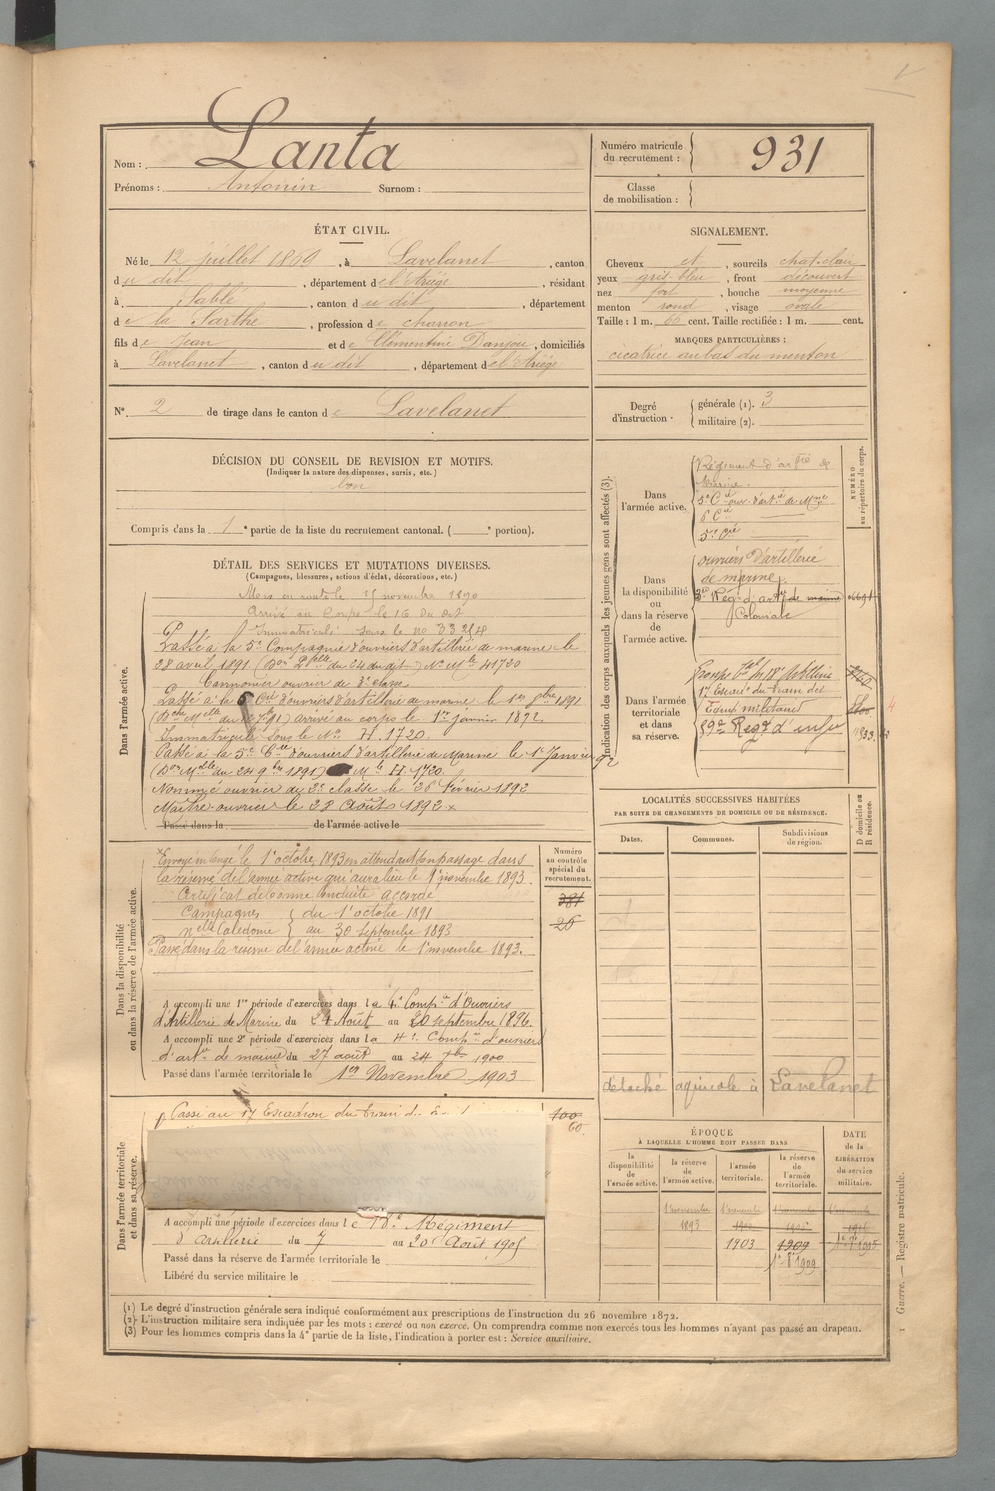 Nom : Lanta
Prénoms : Antonin Surnom :
Numéro matricule du recrutement : 931
Classe de mobilisation :
ÉTAT CIVIL.
Né le 12 juillet 1869, à Lavelanet, canton
du dit, département de l'Ariège, résidant
à Sablé, canton du dit, département
de la Sarthe, profession de charron
fils de Jean et de Clémentine Danjou, domiciliés
à Lavelanet, canton du dit, département de l'Ariège
N° 2 de tirage dans le canton de Lavelanet
SIGNALEMENT.
Cheveux et, sourcils chat. clair
yeux gris-bleu, front découvert
nez fort, bouche moyenne
menton rond, visage ovale
Taille : 1 m. cent. Taille rectifiée : 1 m. cent.
MARQUES PARTICULIÈRES :
cicatrice au bas du menton
Degré d'instruction { générale (1). 3
militaire (2).
DÉCISION DU CONSEIL DE REVISION ET MOTIFS.
(Indiquer la nature des dispenses, sursis, etc.)
bon
Compris dans la 1e partie de la liste du recrutement cantonal. ( e portion).
DÉTAIL DES SERVICES ET MUTATIONS DIVERSES.
(Campagnes, blessures, actions d'éclat, décorations, etc.)
Dans l'armée active.
Mis en route le 15 novembre 1890
Arrivé au Corps le 16 du dit
Immatriculé sous le no
Passé à la 5e Compagnie d'ouvriers d'artillerie de marine le
28 avril 1891. du 24 du dit) No Mle 41720
Cannonier ouvrier de 3e classe
Passé à la 6 Cie d'ouvriers d'artillerie de marine le 1er 9bre 1891
arrivé au corps le 1er janvier 1892.
Immatriculé sous le No H. 1720.
Passé à la 5e Cie d'ouvriers d'artillerie de Marine le 1er Janvier 92
du 24 9bre 1891) Mle H. 1720.
Nommé ouvrier de 2e classe le 26 Février 1892
Maître-ouvrier le 28 Août 1892 x
Passé dans la de l'armée active le
Dans la disponibilité ou dans la réserve de l'armée active.
Numéro au contrôle spécial du recrutement.
381
26
x Envoyé en congé le 1er octobre 1893 en attendant son passage dans
la réserve de l'armée active qui aura lieu le 1er novembre 1893.
Certificat de bonne Conduite accordé
Campagnes { du 1er octobre 1891
nelle Calédonie { au 30 septembre 1893
Passé dans la réserve de l'armée active le 1er novembre 1893.
A accompli une 1re période d'exercices dans la 4e Compie d'Ouvriers
d'Artillerie de Marine du 24 Août au 20 septembre 1896.
A accompli une 2e période d'exercices dans la 4e Compie d'ouvriers
d'artie de marine du 27 août au 24 7bre 1900
Passé dans l'armée territoriale le 1er Novembre 1903
Dans l'armée territoriale et dans sa réserve.
Passé au 17 Escadron du train
100
60.
A accompli une période d'exercices dans le 18e Régiment
d'artillerie du 7 au 20 Août 1905
Passé dans la réserve de l'armée territoriale le
Libéré du service militaire le
Indication des corps auxquels les jeunes gens sont affectés (3).
NUMÉRO au répertoire du corps.
Dans l'armée active.
Régiment d'artie de
Marine.
5e Cie ouv. d'artie de Mne
6 Cie
5e Cie
Dans la disponibilité ou dans la réserve de l'armée active.
ouvriers d'artillerie
de marine.
Rég. d'arty de marine
Coloniale
Dans l'armée territoriale et dans sa réserve.
17 Escadn du train des
Equip. militaires
Regt d'infie
LOCALITÉS SUCCESSIVES HABITÉES
PAR SUITE DE CHANGEMENTS DE DOMICILE OU DE RÉSIDENCE.
D domicile ou R résidence.
Dates. Communes. Subdivisions de région.
détaché agricole à Lavelanet
ÉPOQUE
À LAQUELLE L'HOMME DOIT PASSER DANS
DATE de la LIBÉRATION du service militaire.
la disponibilité de l'armée active.
la réserve de l'armée active.
l'armée territoriale.
la réserve de l'armée territoriale.
1 novembre 1893
1903
1909
1er 8e 1909
(1) Le degré d'instruction générale sera indiqué conformément aux prescriptions de l'instruction du 26 novembre 1872.
(2) L'instruction militaire sera indiquée par les mots : exercé ou non exercé. On comprendra comme non exercés tous les hommes n'ayant pas passé au drapeau.
(3) Pour les hommes compris dans la 4e partie de la liste, l'indication à porter est : Service auxiliaire.
Guerre. — Registre matricule.